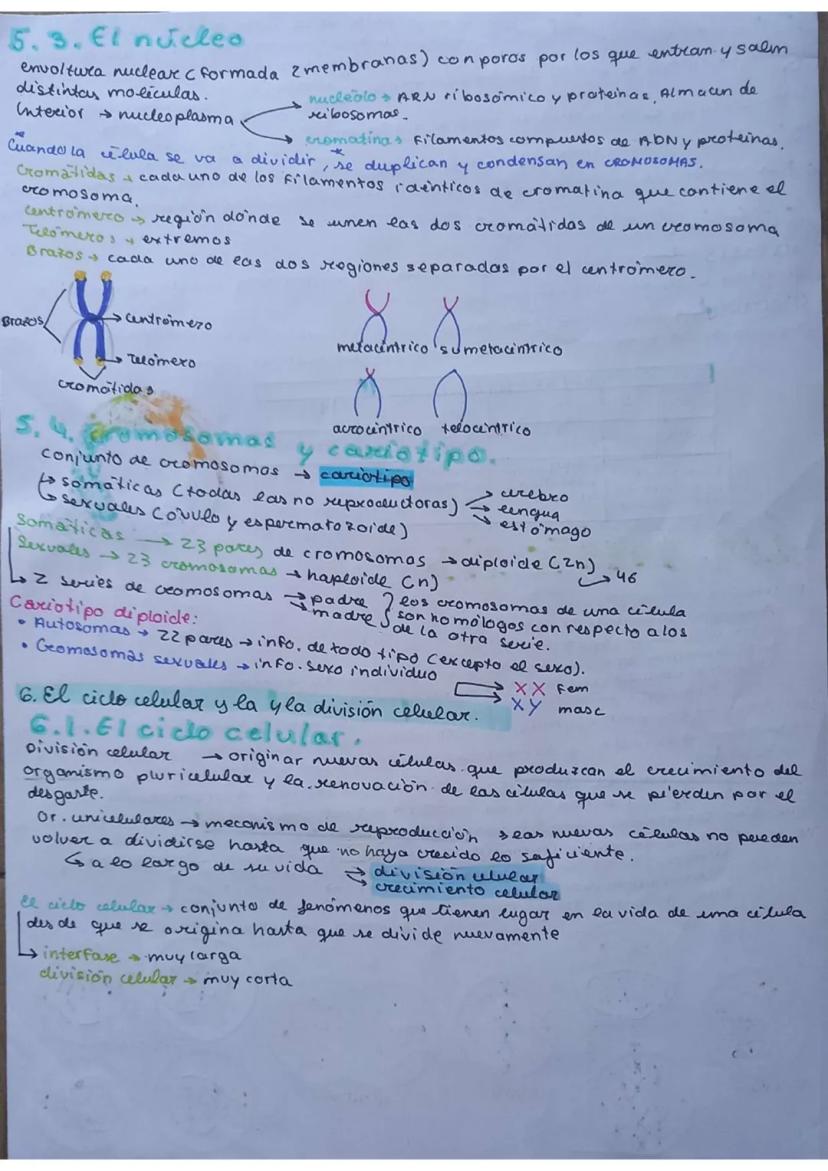 5.3. El núcleo
envoltura nuclear (formada 2 membranas) con poros por los que entran y salen
distintas moléculas.
Interior → nucleoplasma
nucleolo → ARN ribosómico y proteínas. Almacen de
ribosomas.
cromatina → Filamentos compuestos de ADN y proteínas.
Cuando la célula se va a dividir, se duplican y condensan en CROMOSOMAS.
Cromátidas → cada uno de los filamentos idénticos de cromatina que contiene el
cromosoma.
Centrómero → región donde se unen las dos cromátidas de un cromosoma
Telómeros → extremos
Brazos → cada uno de las dos regiones separadas por el centrómero.
Brazos
→ centrómero
→ Telómero
cromátidas
metacéntrico sumetacéntrico
acrocéntrico telocéntrico
5.4. Cromosomas y cariotipo.
conjunto de cromosomas → cariotipo
↳ somáticas (todas las no reproductoras)
→ cerebro
→ lengua
→ estómago
↳ sexuales (óvulo y espermatozoide)
Somáticas → 23 pares de cromosomas → diploide (2n)
→ 46
Sexuales → 23 cromosomas → haploide (n)
↳ 2 series de cromosomas → padre
→ madre
los cromosomas de una célula
son homólogos con respecto a los
de la otra serie.
Cariotipo diploide:
• Autosomas → 22 pares → info. de todo tipo (excepto el sexo).
• Cromosomas sexuales → info. sexo individuo
→ XX Fem
→ XY masc
6. El ciclo celular y la y la división celular.
6.1. El ciclo celular.
División celular → originar nuevas células que produzcan el crecimiento del
organismo pluricelular y la renovación de las células que se pierden por el
desgaste.
Or. unicelulares → mecanismo de reproducción → las nuevas células no pueden
volver a dividirse hasta que no haya crecido lo suficiente.
↳ a lo largo de su vida
→ división celular
→ crecimiento celular
El ciclo celular → conjunto de fenómenos que tienen lugar en la vida de una célula
desde que se origina hasta que se divide nuevamente
↳ interfase → muy larga
división celular → muy corta